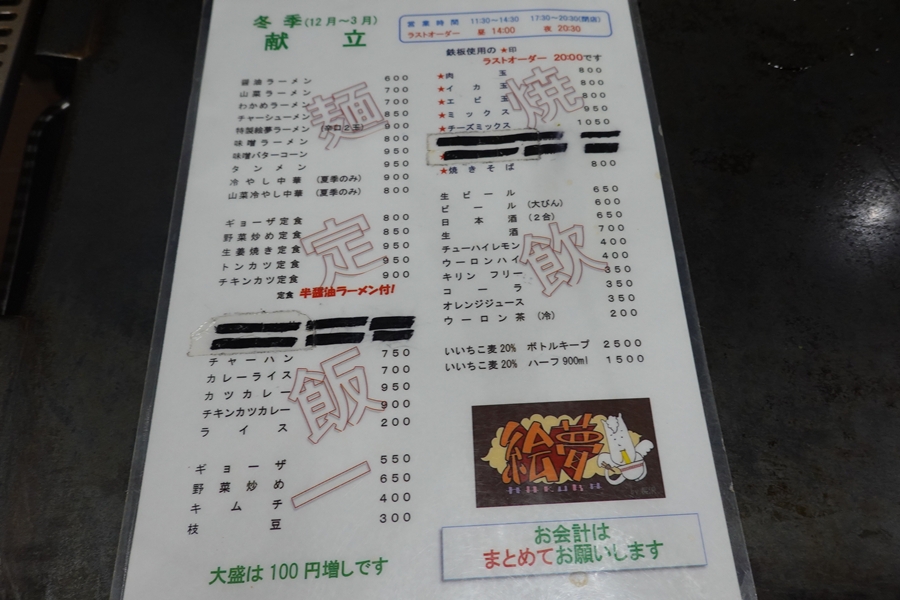 冬季(12月～3月)
献立
営業時間 11:30～14:30 17:30～20:30(閉店)
ラストオーダー 昼 14:00 夜 20:30
麺
醤油ラーメン 600
山菜ラーメン 700
わかめラーメン 700
チャーシューメン 850
特製絵夢ラーメン (辛口2玉) 900
味噌ラーメン 800
味噌バターコーン 950
タンメン 950
冷やし中華 (夏季のみ) 900
山菜冷やし中華 (夏季のみ) 800
定
ギョーザ定食 800
野菜炒め定食 850
生姜焼き定食 950
トンカツ定食 950
チキンカツ定食 900
定食 半醤油ラーメン付!
飯
チャーハン 750
カレーライス 700
カツカレー 950
チキンカツカレー 900
ライス 200
一
ギョーザ 550
野菜炒め 650
キムチ 400
枝豆 300
大盛は100円増しです
鉄板使用の★印
ラストオーダー 20:00です
焼
★肉玉 800
★イカ玉 800
★エビ玉 800
★ミックス 950
★チーズミックス 1050
★焼きそば 800
飲
生ビール 650
ビール (大びん) 600
日本酒 (2合) 650
生酒 700
チューハイレモン 400
ウーロンハイ 400
キリンフリー 350
コーラ 350
オレンジジュース 350
ウーロン茶 (冷) 200
いいちこ麦20% ボトルキープ 2500
いいちこ麦20% ハーフ900ml 1500
絵夢
お会計は
まとめてお願いします